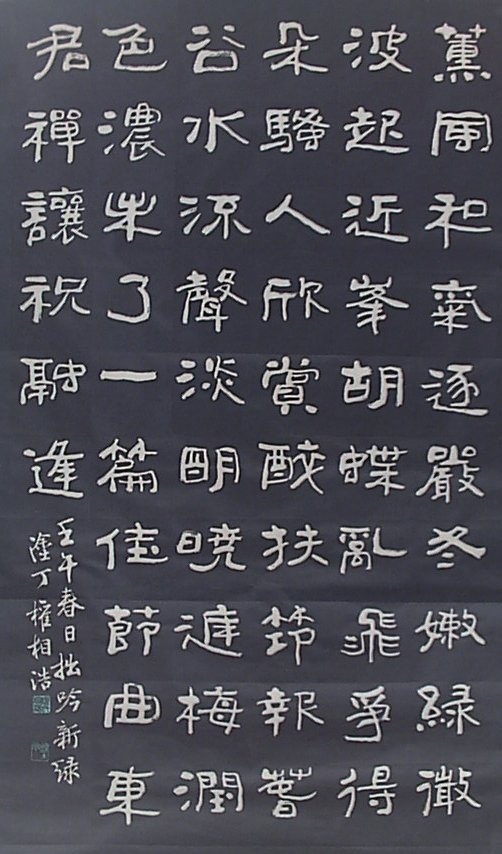 薰風和氣逐嚴冬嫩綠微
波起近峯胡蝶亂飛爭得
朵騷人欣賞醉扶笻報春
谷水流聲淡明曉漣梅潤
色濃未了一篇佳節曲東
君禪讓祝融逢
壬午春日拙吟新綠
塗丁權相浩